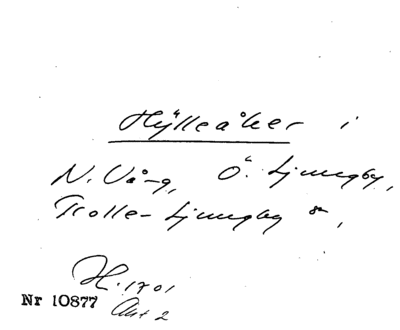 Hylleåker i
N. Vång, Ö. Ljungby,
Trolle-Ljungby sn,
H. 1701
Nr 10877 Akt 2